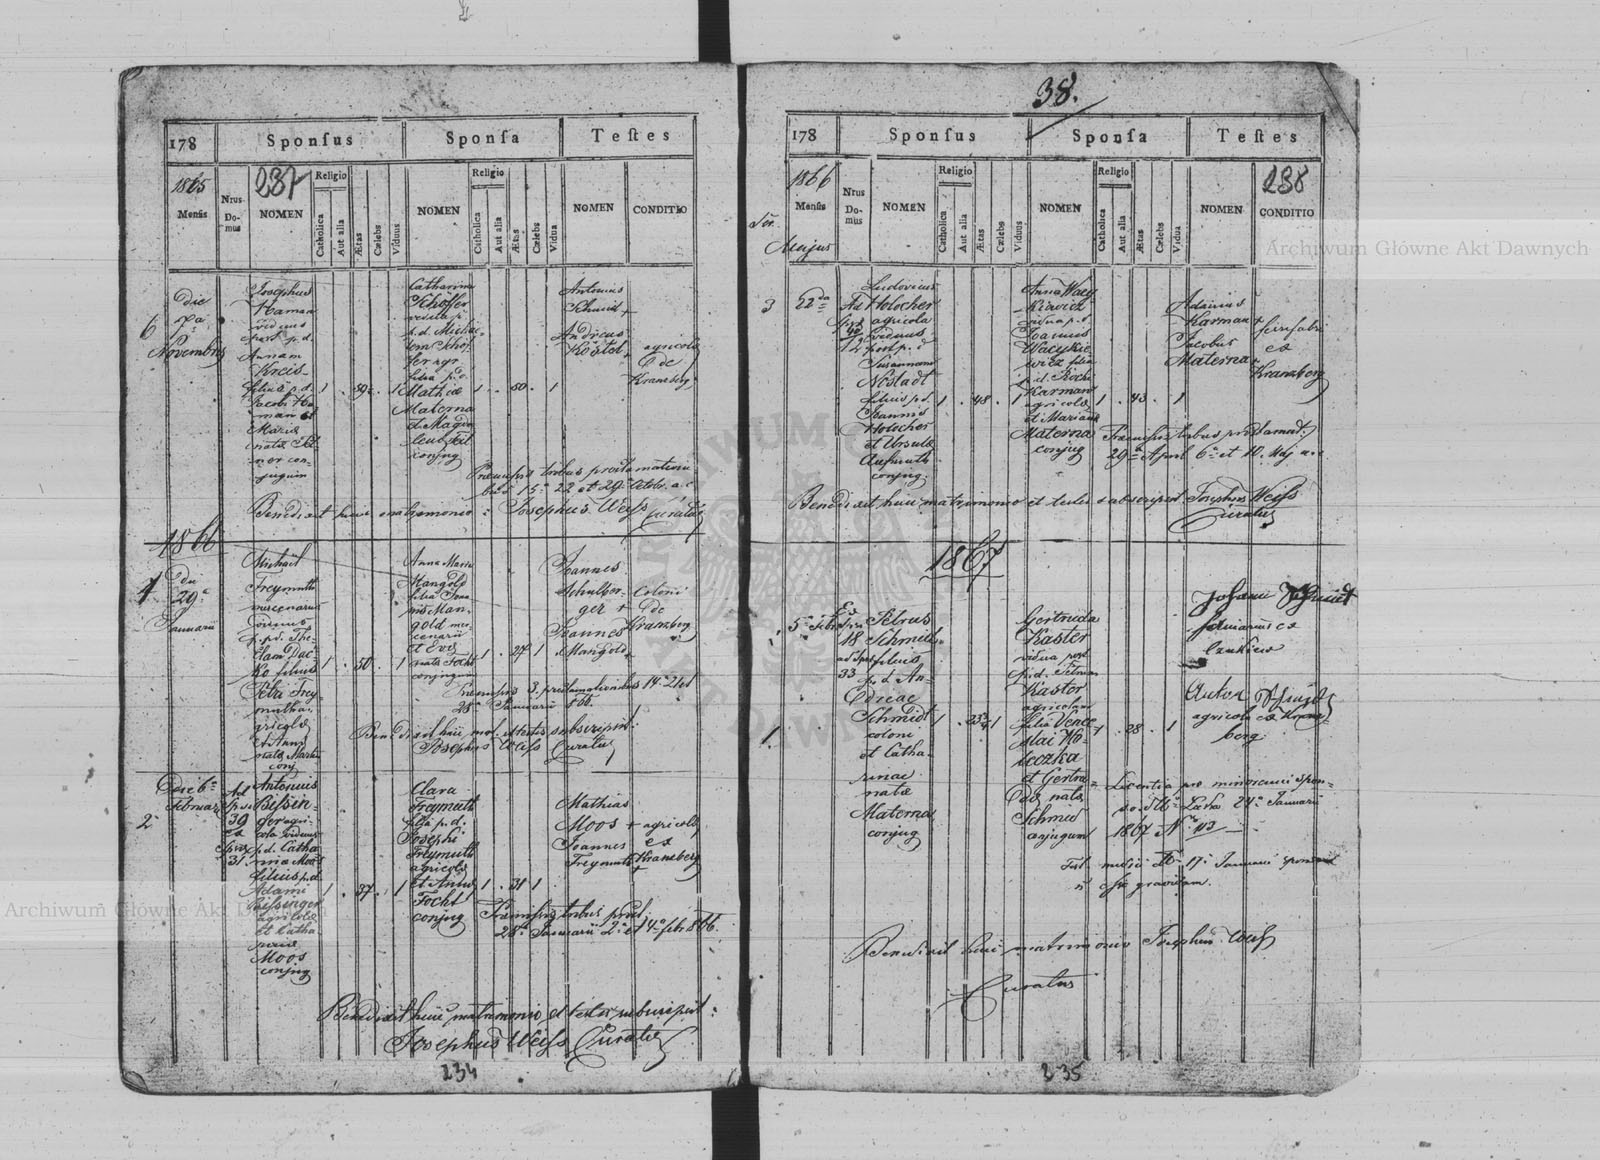 178 Sponſus Sponſa Teſtes
1865 237
Menſis Nrus Domus NOMEN Religio Catholica Aut alia Ætas Cælebs Viduus NOMEN Religio Catholica Aut alia Ætas Cælebs Vidua NOMEN CONDITIO
6
die
Novembris
Josephus
Haman
viduus
post p.d.
Annam
Kreis
filius p.d.
Jacobi Ha
man et
Mariæ
natæ
conjugum
1 . 59 . 1
Catharina
Schöffer
vidua p.
p.d. Michae
lem Schöf
fer agr.
filia p.d.
Mathiæ
Materna
et Magda
conjug
1 . 50 . 1
Antonius
Schmid +
Andreas
Köstel +
agricolæ
de
Kranzberg
Præmissis tribus proclamationi
bus 15a 22 et 29a Octobr. a.c
Benedixit huic matrimonio : Josephus Weiss Curatus
1866
1
Die
29a
Januarii
Michaël
Freymuth
mercenarius
viduus
p.p.d. The
clam Dac
ko filius
Petri Frey
muth a
gricolæ
et Annæ
natæ Martin
conj
1 . 50 . 1
Anna Maria
Mangold
filia Joan
nis Man
gold mer
cenarii
et Evæ
natæ Focht
conjugum
1 . 27 1
Joannes
Schulber
ger +
Joannes
Mangold +
Coloni
de
Kranzberg
Præmissis 3. proclamationibus 14a 21 et
28a Januarii 866.
Benedixit huic mat. et testes subscripsit:
Josephus Weiss Curatus
2
Die 6a
Februarii
Ad
39
ex
31
Antonius
Bissin
ger agri
cola viduus
p.d. Catha
rinæ Moos
filius p.d.
Adami
Bissinger
agricolæ
et Catha
rinæ
Moos
conjug
1 . 37 . 1
Clara
Freymuth
filia p.d.
Josephi
Freymuth
agricolæ
et Annæ
Focht
conjug
1 . 31 1
Mathias
Moos +
Joannes
Freymuth +
agricolæ
ex
Kranzberg
Præmissis tribus procl.
28a Januarii 2a et 4a febr 866.
Benedixit huic matrimonio et testes subscripsit :
Josephus Weiss Curatus
234
38.
178 Sponſus Sponſa Teſtes
1866 238
Menſis Nrus Domus NOMEN Religio Catholica Aut alia Ætas Cælebs Viduus NOMEN Religio Catholica Aut alia Ætas Cælebs Vidua NOMEN CONDITIO
Majus
3
22da
Ad
40
12
Ludovicus
Holocher
agricola
viduus
post p. d
Susannam
Nostadt
filius p.d.
Joannis
Holocher
et Ursulæ
conjug
1 . 48 . 1
Anna Wacy
kiewicz
vidua p.d
Joannis
Wacykie
wicz filia
p.d. Rochi
Karman
agricolæ
et Mariannæ
Materna
conjug
1 . 43 . 1
Adamus
Karman +
Jacobus
Materna +
ex
Kranzberg
Præmissis tribus proclamat:
29a April 6a et 10. Maj a.c
Benedixit huic matrimonio et testes subscripsit Josephus Weiss
Curatus
1867
1
5a Febr
Ex
18
ad
33
Petrus
Schmidt
filius
p. d. An
dreae
Schmidt
coloni
et Catha
rinae
natæ
Materna
conjug
1 . 23 1
Gertruda
Kaster
vidua post
p.d. Petrum
Kaster
agricolam
filia Vence
slai Ko
teczka
et Gertru
dis natæ
Schmid
conjugum
1 . 28 . 1
Johann Schmidt
ex
Anton Schmidt
agricola ex Kranz
berg
Licentia pro minorenni spon
so dtto Lava 24a Januarii
1867 Nro 113
17a Januarii sponsam
esse gravidam.
Benedixit huic matrimonio Josephus Weiss
Curatus
235
Archiwum Główne Akt Dawnych
Archiwum Główne Akt Dawnych
ARCHIWUM GŁÓWNE AKT DAWNYCH